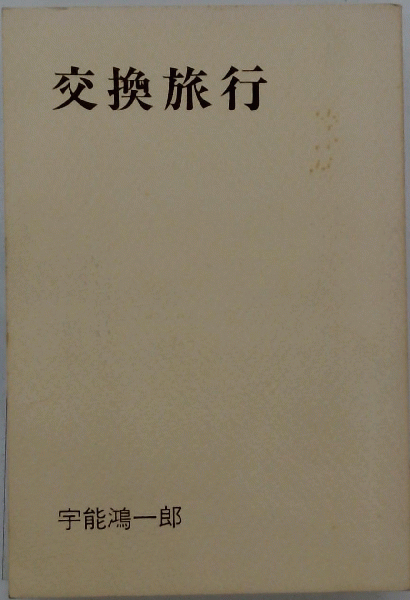 交換旅行
宇能鴻一郎